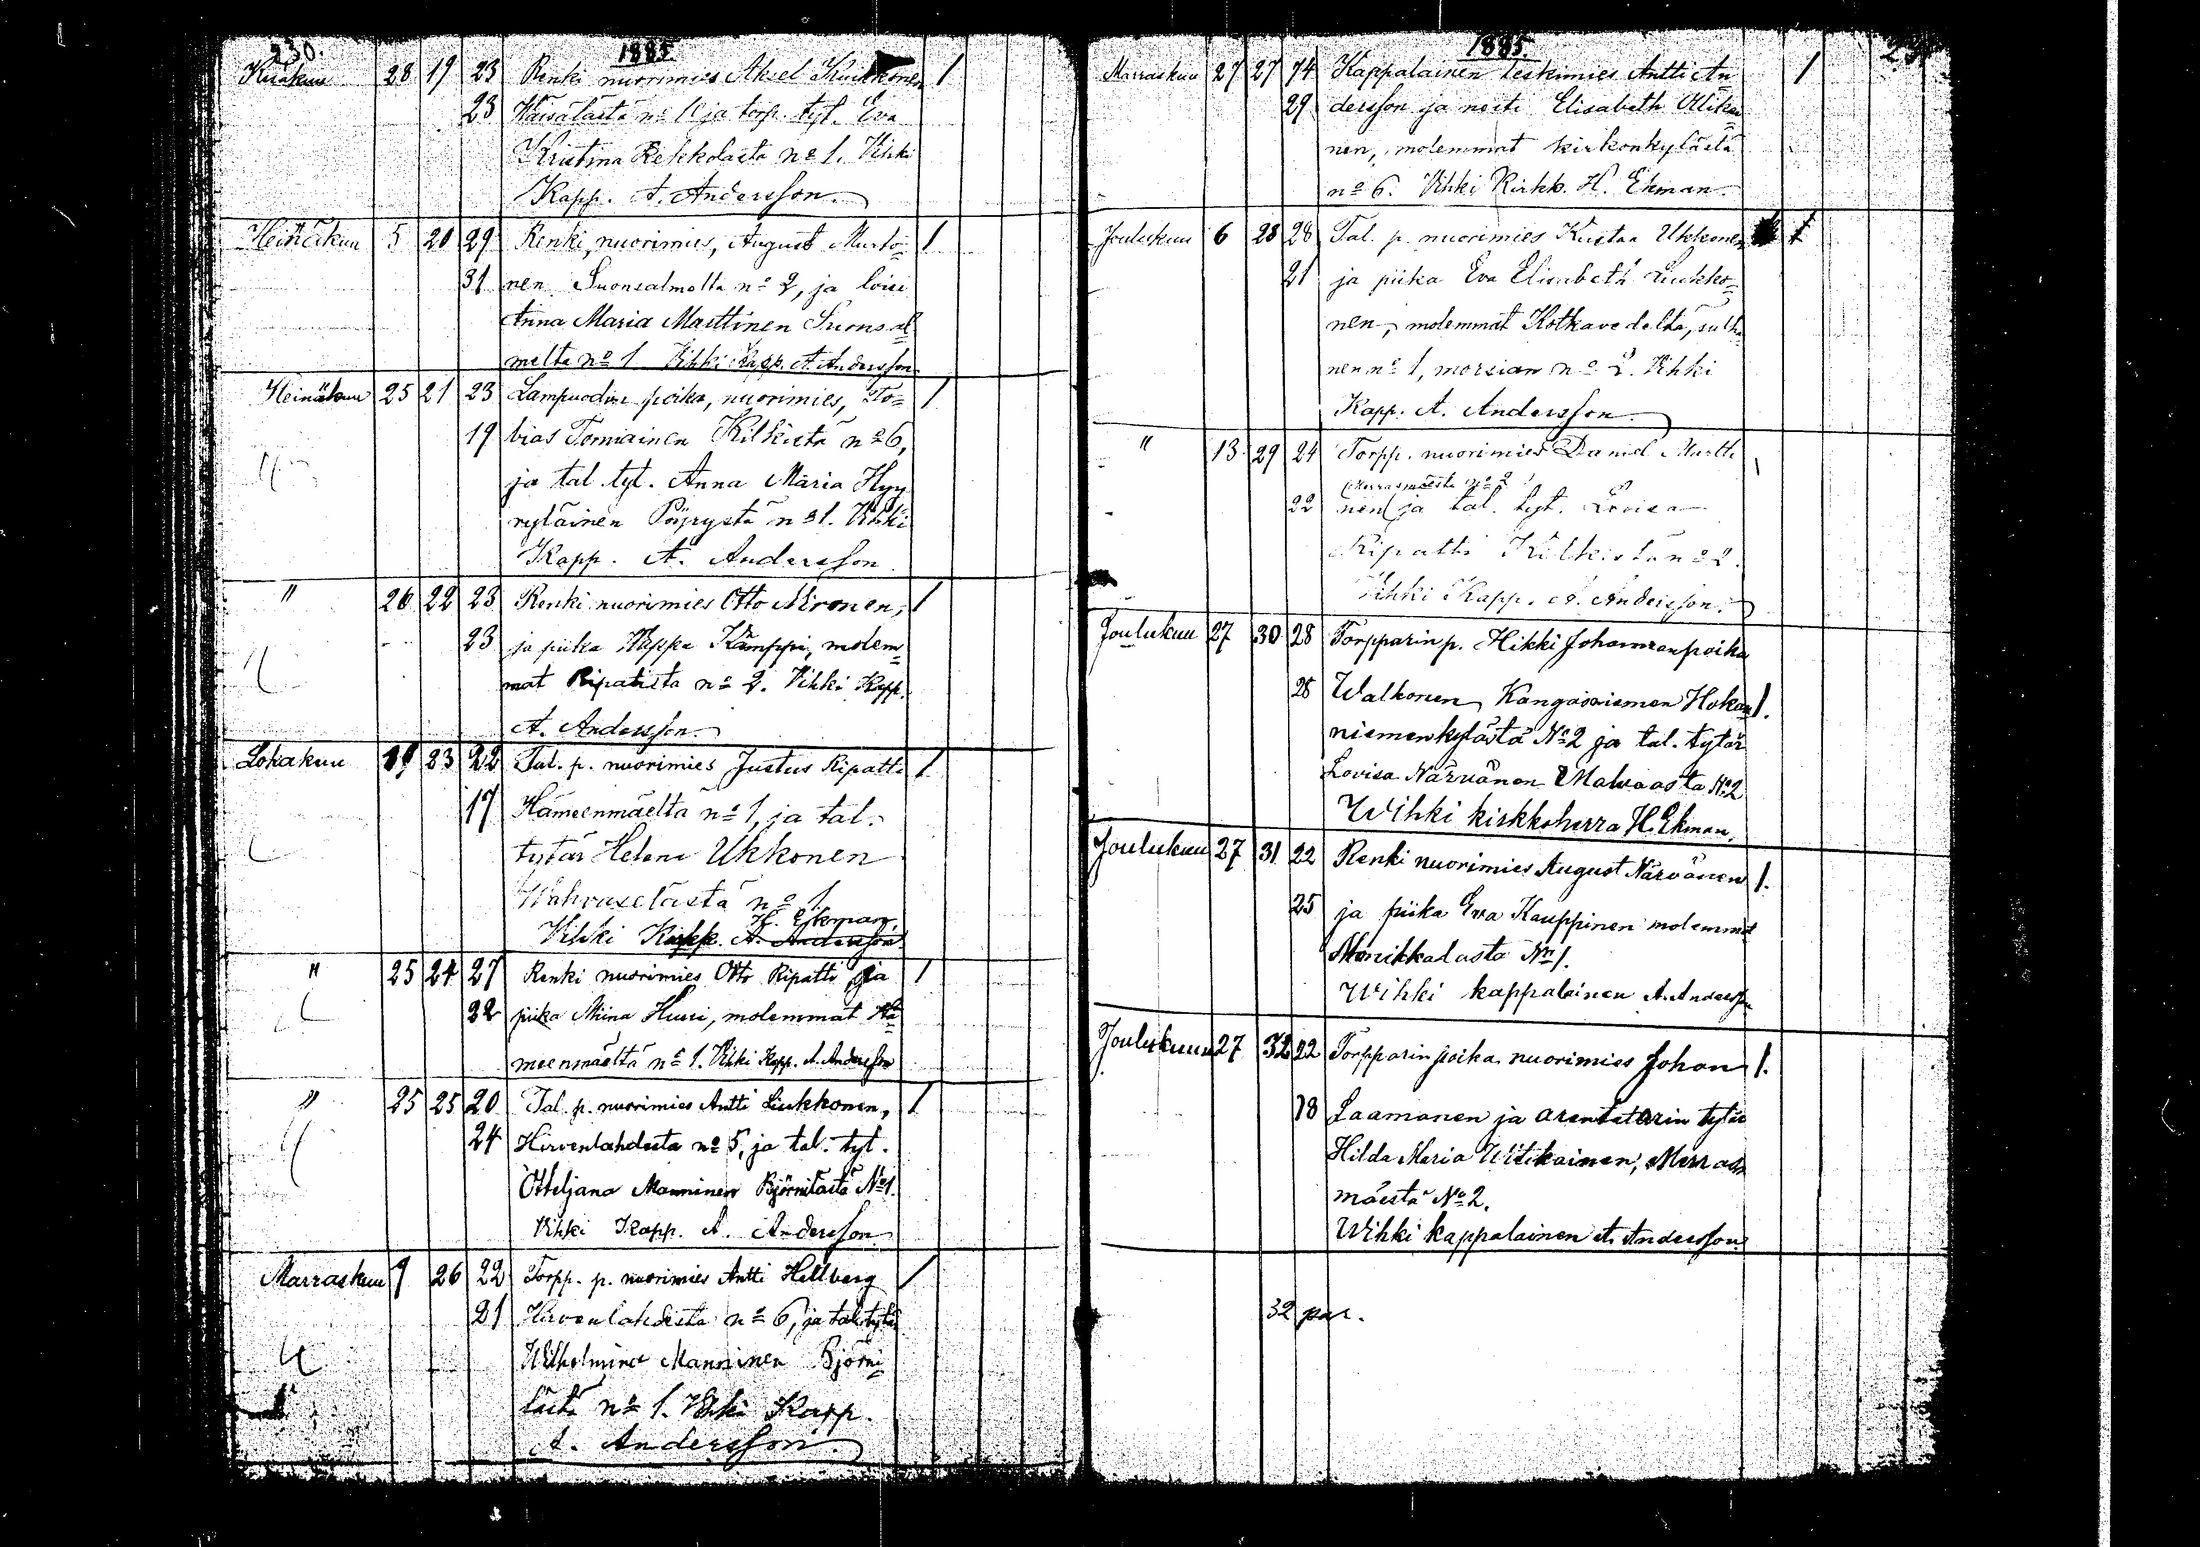 230.
1885
Kesäkuu 28 19 23 Renki nuorimies Aksel Kuikkonen 1
23 no 1 ja torp. tyt. Eva
Kristina Rekkolasta no 1. Vihki
Kapp. A. Andersson.
Heinäkuu 5 20 29 Renki, nuorimies, August Murto- 1
31 nen Suonsalmelta no 2, ja loisi
Anna Maria Marttinen Suonsal-
melta no 1 Vihki Kapp. A. Andersson
Heinäkuu 25 21 23 Lampuodin poika, nuorimies, To= 1
19 bias Tomiainen Kilkistä no 6,
ja tal. tyt. Anna Maria Hyy
ryläinen Pöyrystä no 1. Vihki
Kapp. A. Andersson
" 26 22 23 Renki nuorimies Otto Mironen, 1
23 ja piika Kämppi, molem=
mat Ripatista no 2. Vihki Kapp.
A. Andersson.
Lokakuu 19 23 22 Tal. p. nuorimies Justus Ripatti 1
17 Hämeenmäeltä no 1, ja tal.
tytär Helena Ukkonen
no 1.
H. Ekman
Vihki Kirkk. A. Andersson
" 25 24 27 Renki nuorimies Otto Ripatti ja 1
22 piika Miina Hurri, molemmat Hä=
meenmäeltä no 1. Vihki Kapp. A. Andersson
" 25 25 20 Tal. p. nuorimies Antti Liukkonen, 1
24 Hirvenlahdesta no 5, ja tal. tyt.
Otteljana Manninen Björnilästä No 1.
Vihki Kapp. A. Andersson
Marraskuu 9 26 22 Torpp. p. nuorimies Antti Hellberg 1
21 Hirvenlahdesta no 6, ja tal. tytär
Wilhelmina Manninen Björni
lästä no 1. Vihki Kapp.
A. Andersson.
1885
Marraskuu 27 27 74 Kappalainen leskimies Antti An 1
29 dersson ja neiti Elisabeth Olika
nen, molemmat kirkonkylästä
no 6. Vihki Kirkk. H. Ekman.
Joulukuu 6 28 28 Tal. p. nuorimies Kustaa Ukkonen 1
21 ja piika Eva Elisabeth Liukko=
nen, molemmat Kotkavedeltä, sulha
nen no 1, morsian no 2. Vihki
Kapp. A. Andersson.
" 13 29 24 Torpp. nuorimies Daniel Martti
(Marrasmäestä no 2
22 nen (ja tal. tyt. Lovisa
Ripatti Kilkistä no 2.
Vihki Kapp. A. Andersson.
Joulukuu 27 30 28 Torpparin p. Hikki Johannanpoika
28 Walkonen Kangasniemen Hokan 1.
niemenkylästä No 2 ja tal. tytär
Lovisa Närvänen Malvaasta No 2
Wihki kirkkoherra H. Ekman.
Joulukuu 27 31 22 Renki nuorimies August Närvänen 1.
25 ja piika Eva Kauppinen molemmat
Monikkalasta No 1.
Wihki kappalainen A. Andersson
Joulukuun 27 32 22 Torpparin poika nuorimies Johan 1.
18 Laamanen ja arentatorin tytär
Hilda Maria Witikainen, Marras
mäestä No 2.
Wihki kappalainen A. Andersson
32 par.